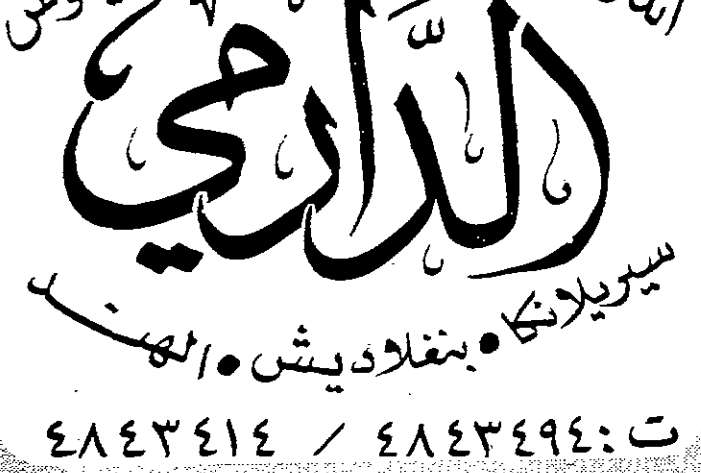 الدّارمي
سيريلانكا • بنغلاديش • الهند
ت: ٤٨٤٣٤٩٤ / ٤٨٤٣٤١٤